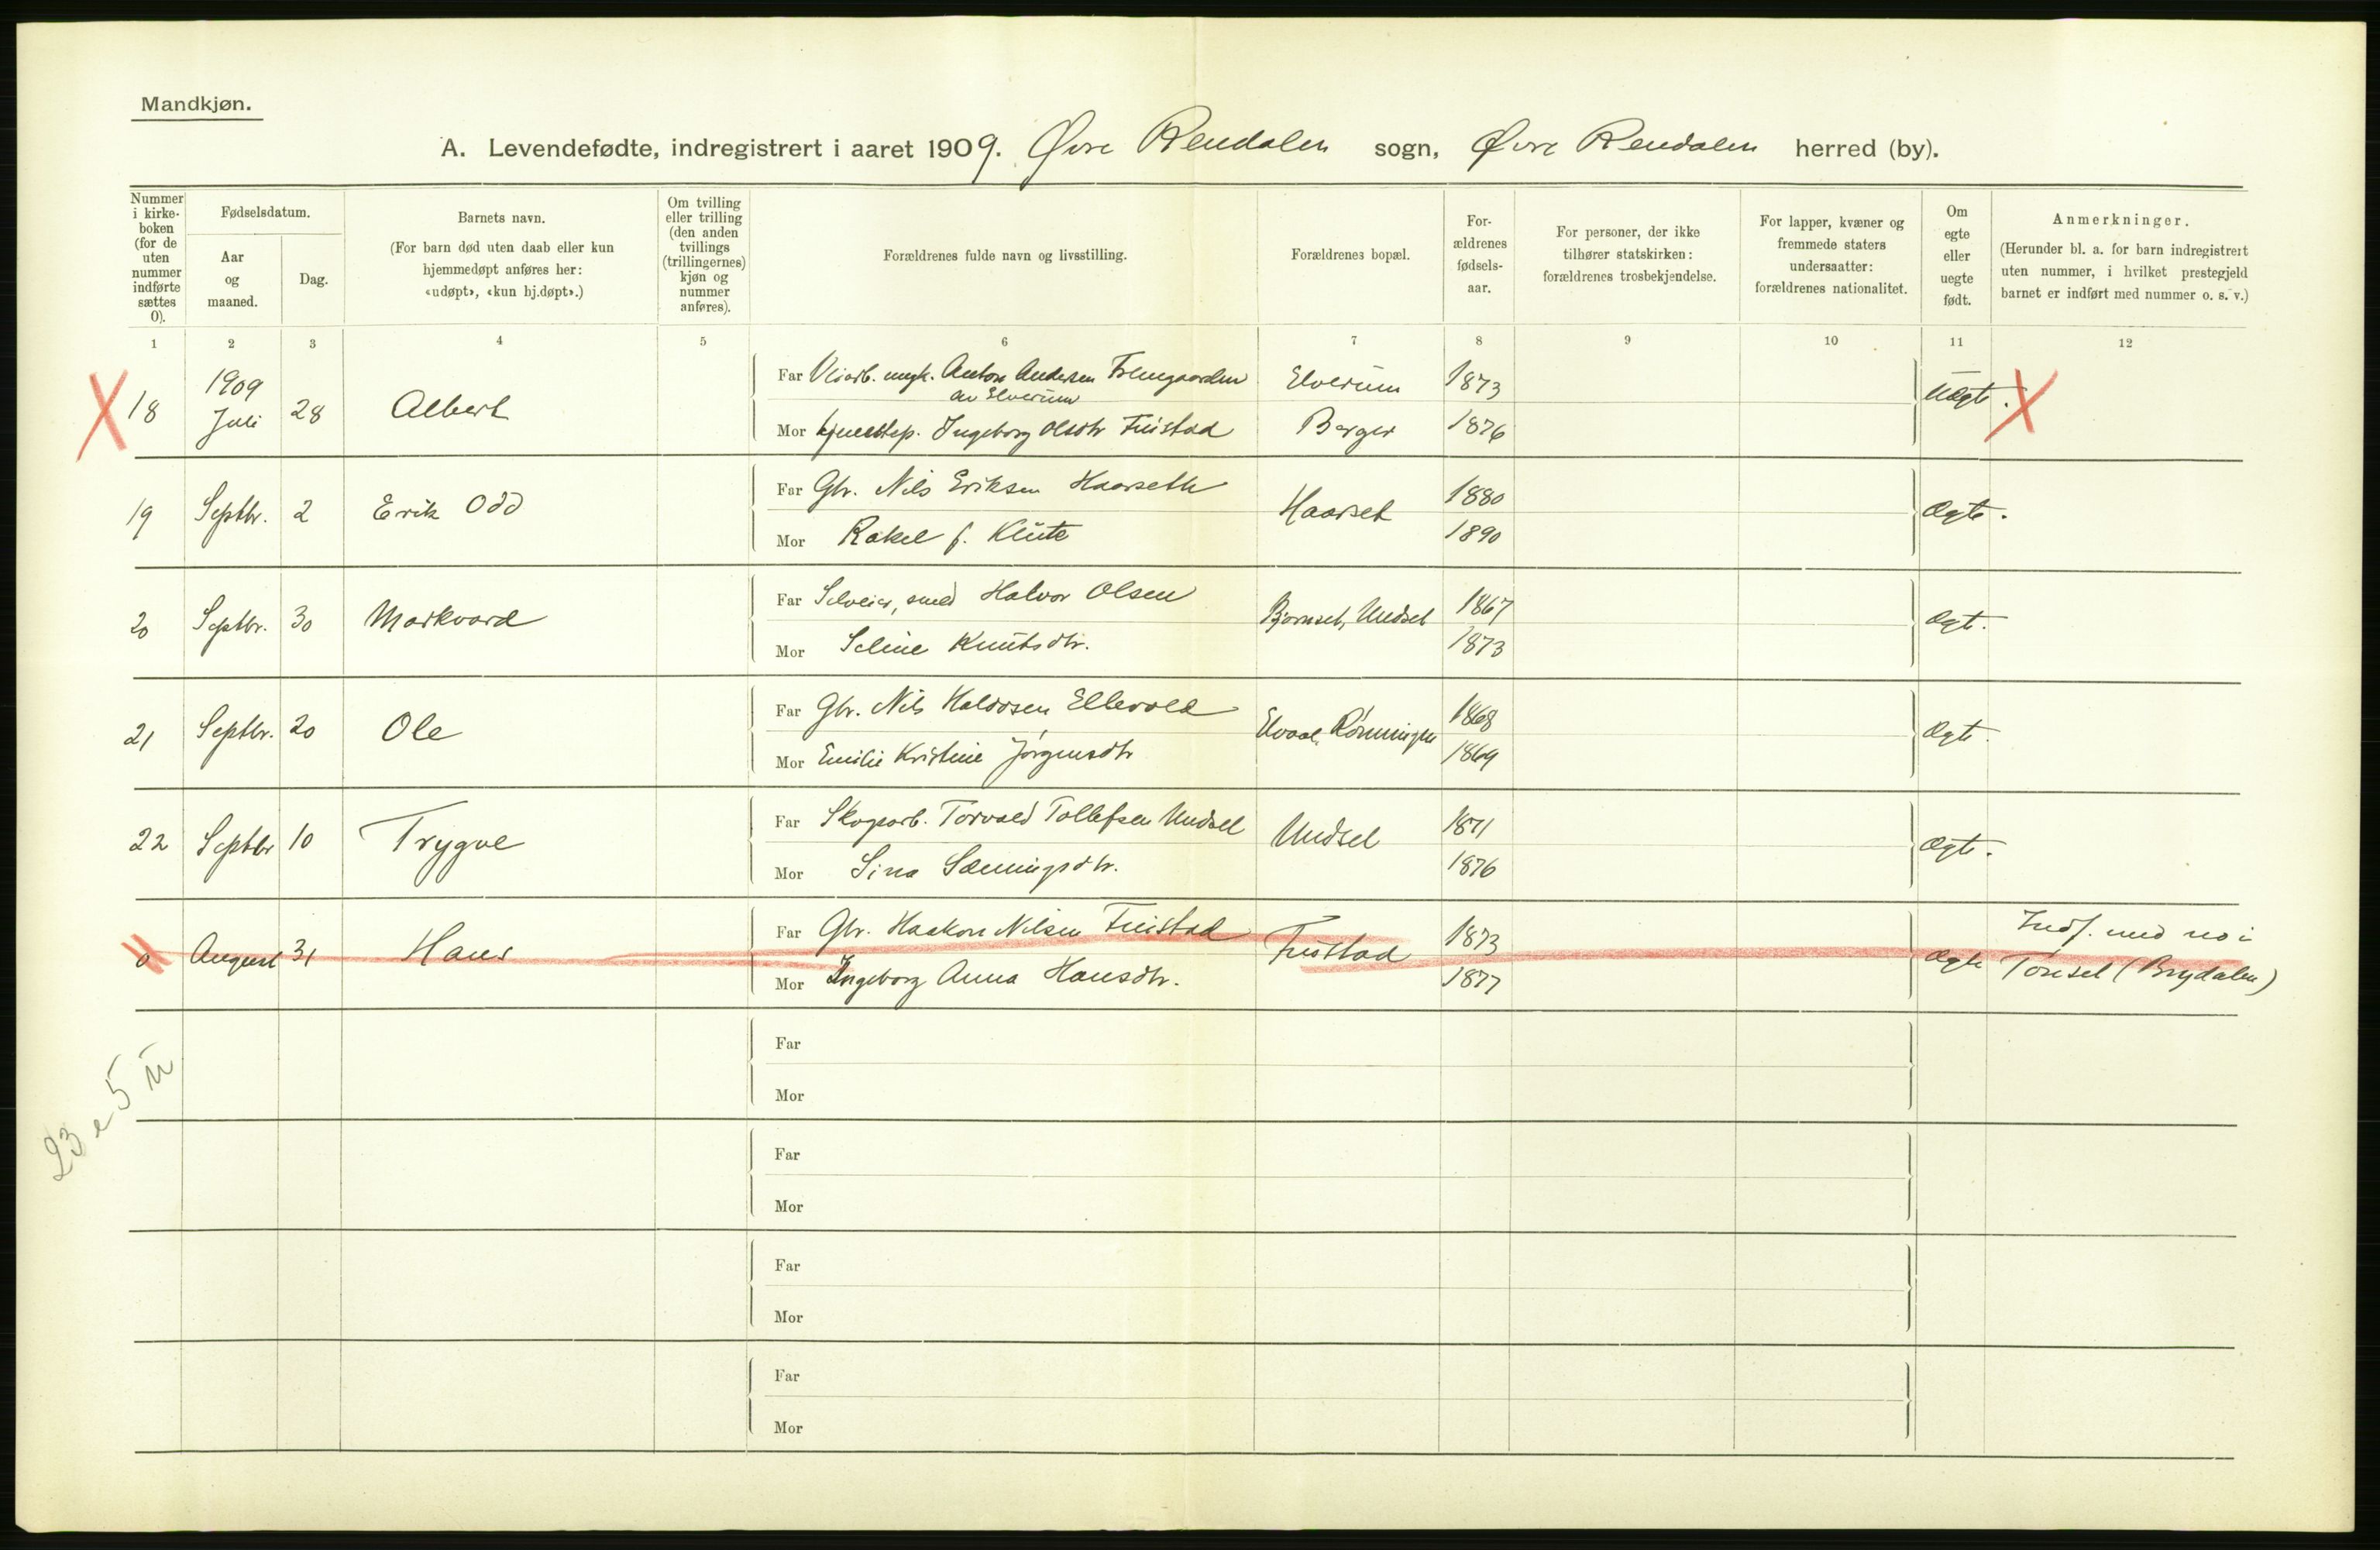 Mandkjøn.
A. Levendefødte, indregistrert i aaret 1909. Øvre Rendalen sogn, Øvre Rendalen herred (by).
Nummer i kirke-boken (for de uten nummer indførte sættes 0).
Fødselsdatum.
Aar og maaned.
Dag.
Barnets navn.
(For barn død uten daab eller kun hjemmedøpt anføres her: «udøpt», «kun hj.døpt».)
Om tvilling eller trilling (den anden tvillings (trillingernes) kjøn og nummer anføres).
Forældrenes fulde navn og livsstilling.
Forældrenes bopæl.
For-ældrenes fødsels-aar.
For personer, der ikke tilhører statskirken: forældrenes trosbekjendelse.
For lapper, kvæner og fremmede staters undersaatter: forældrenes nationalitet.
Om egte eller uegte født.
Anmerkninger.
(Herunder bl. a. for barn indregistrert uten nummer, i hvilket prestegjeld barnet er indført med nummer o. s. v.)
1 2 3 4 5 6 7 8 9 10 11 12
18 1909 Juli 28 Albert
Far Anton Andersen Elverum 1873
av Elverum
Mor Ingeborg Olsdtr Berger 1876
Uægte.
19 Septbr. 2 Erik Odd
Far Gbr. Nils Eriksen Haarseth 1880
Haarset
Mor Rakel f. 1890
Ægte.
20 Septbr. 30 Markvard
Far Selveier, smed Halvor Olsen 1867
Bjørnset, Undset
Mor Seline Knutsdtr. 1873
Ægt.
21 Septbr. 20 Ole
Far Gbr. Nils Haldosen Ellevold 1868
Elvaal, Rønningen
Mor Emilie Kristine Jørgensdtr 1869
Ægt.
22 Septbr 10 Trygve
Far Skogsarb. Torvald Tollefsen Undset 1871
Undset
Mor Sina Sæmingsdtr. 1876
Ægte.
0 August 31 Hans
Far Gbr. Haakon Nilsen Finstad 1873
Finstad
Mor Ingeborg Anna Hansdtr. 1877
Ægte
Indf. med no i
Tønset (Brydalen)
Far
Mor
Far
Mor
Far
Mor
Far
Mor
23 e 5 u